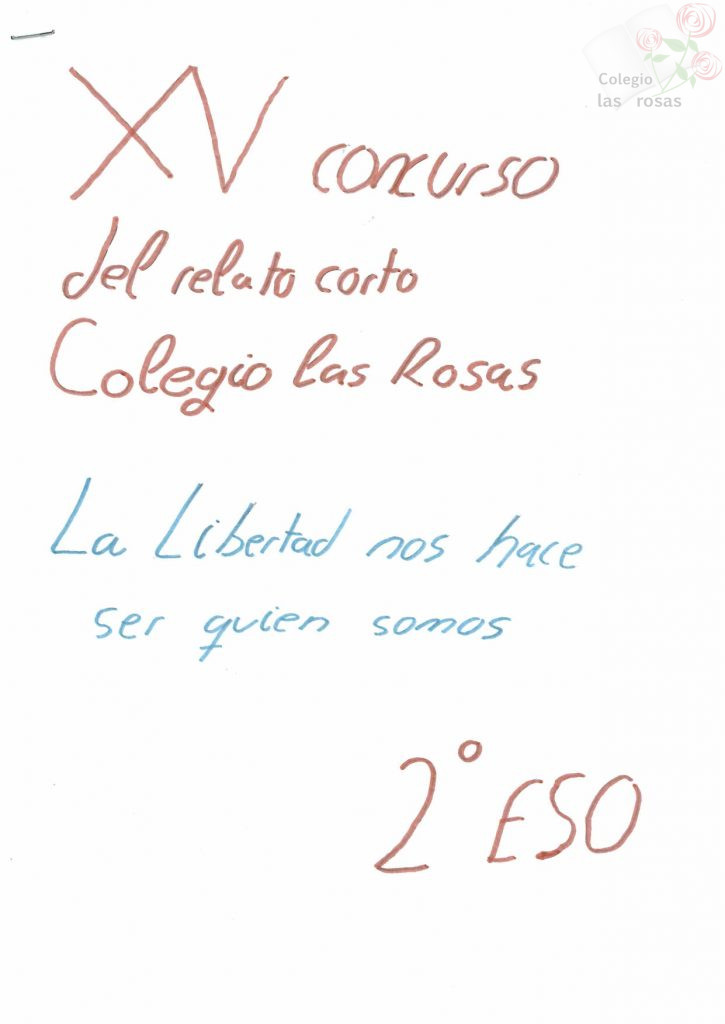 Colegio
las rosas
XV concurso
del relato corto
Colegio las Rosas
La Libertad nos hace
ser quien somos
2º ESO